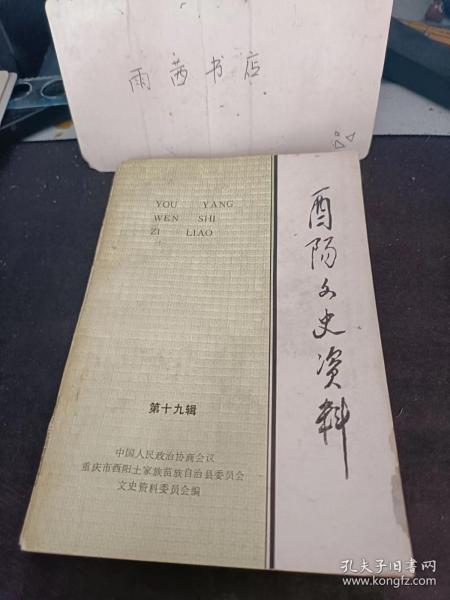 雨茜书店
YOU YANG
WEN SHI
ZI LIAO
酉阳文史资料
第十九辑
中国人民政治协商会议
重庆市酉阳土家族苗族自治县委员会
文史资料委员会编
孔夫子旧书网
www.kongfz.com